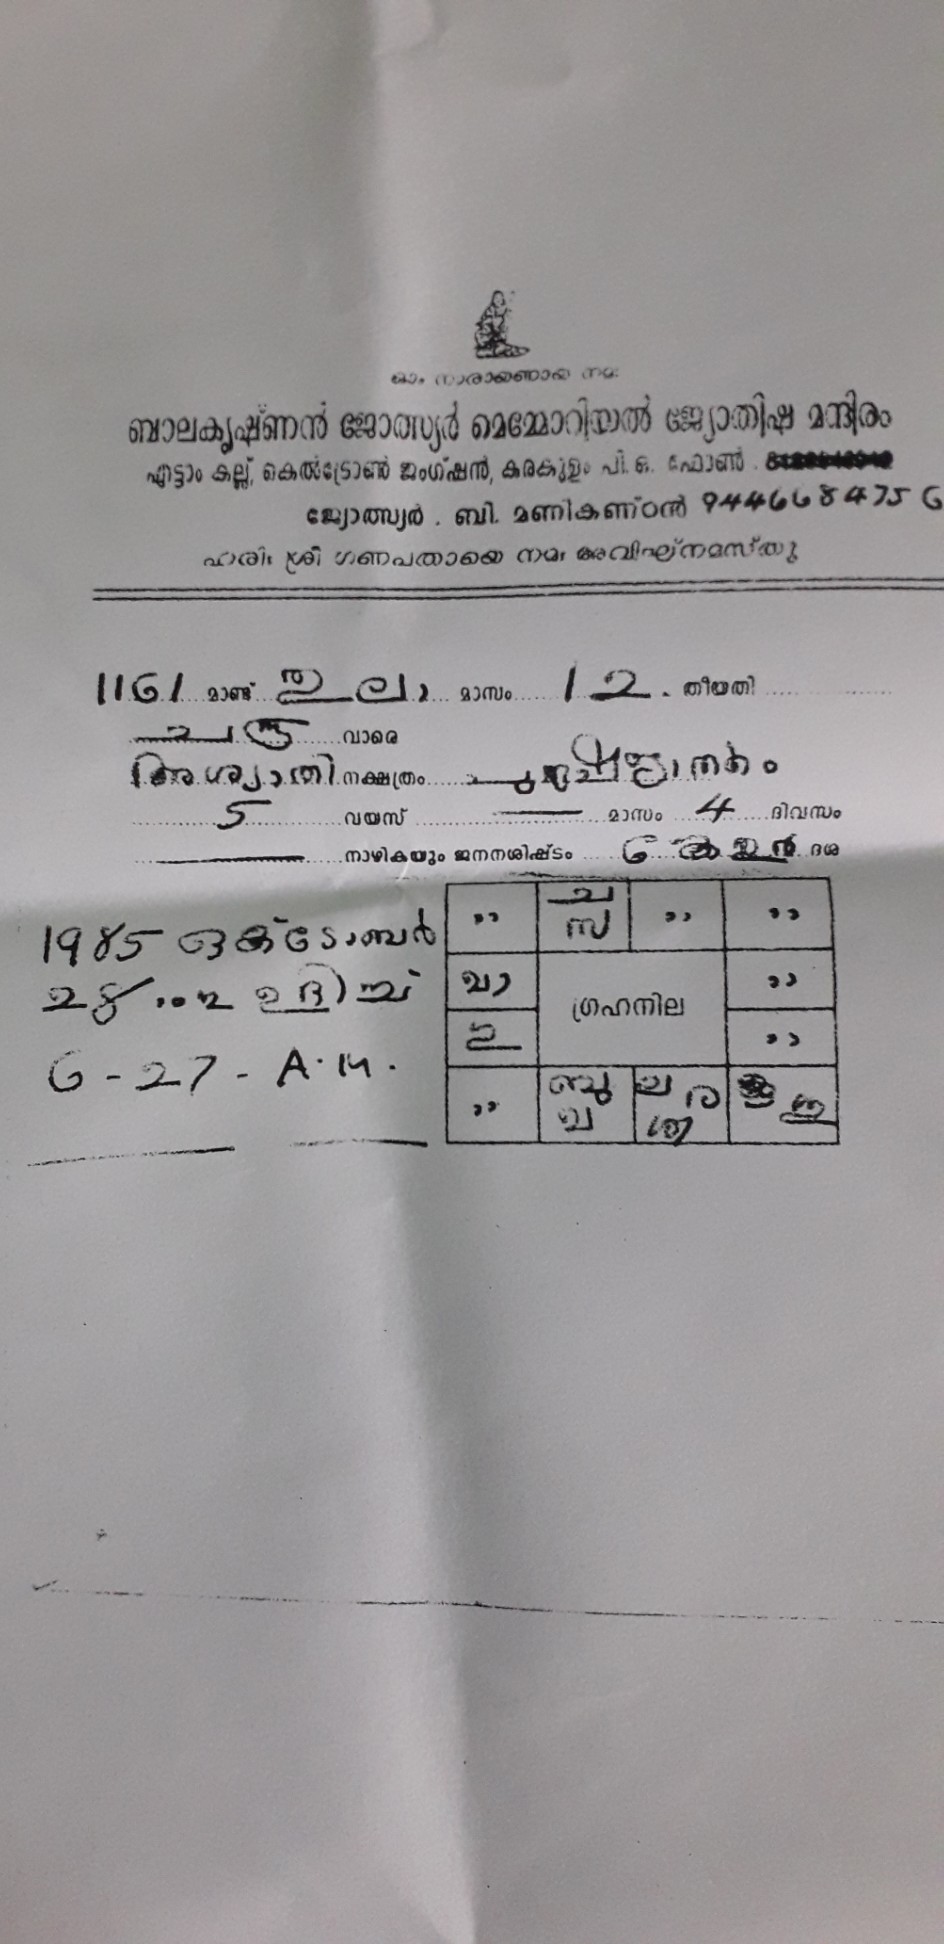 ഓം നാരായണായ നമഃ
ബാലകൃഷ്ണൻ ജോത്സ്യർ മെമ്മോറിയൽ ജ്യോതിഷ മന്ദിരം
എട്ടാം കല്ല്, കെൽട്രോൺ ജംഗ്ഷൻ, കരകുളം പി.ഒ. ഫോൺ .
ജ്യോത്സ്യർ . ബി. മണികണ്ഠൻ 9446684756
ഹരിഃ ശ്രീ ഗണപതായെ നമഃ അവിഘ്നമസ്തു
1161 മാണ്ട് തുലാ മാസം 12. തീയതി
വാരെ
അശ്വതി നക്ഷത്രം പുരുഷജാതകം
5 വയസ് മാസം 4 ദിവസം
നാഴികയും ജനനശിഷ്ടം ദശ
1985 ഒക്ടോബർ
28 ഉദിച്ച്
6-27-A.M.
" ച സ " "
"
ഗ്രഹനില
"
" ബു ല ര